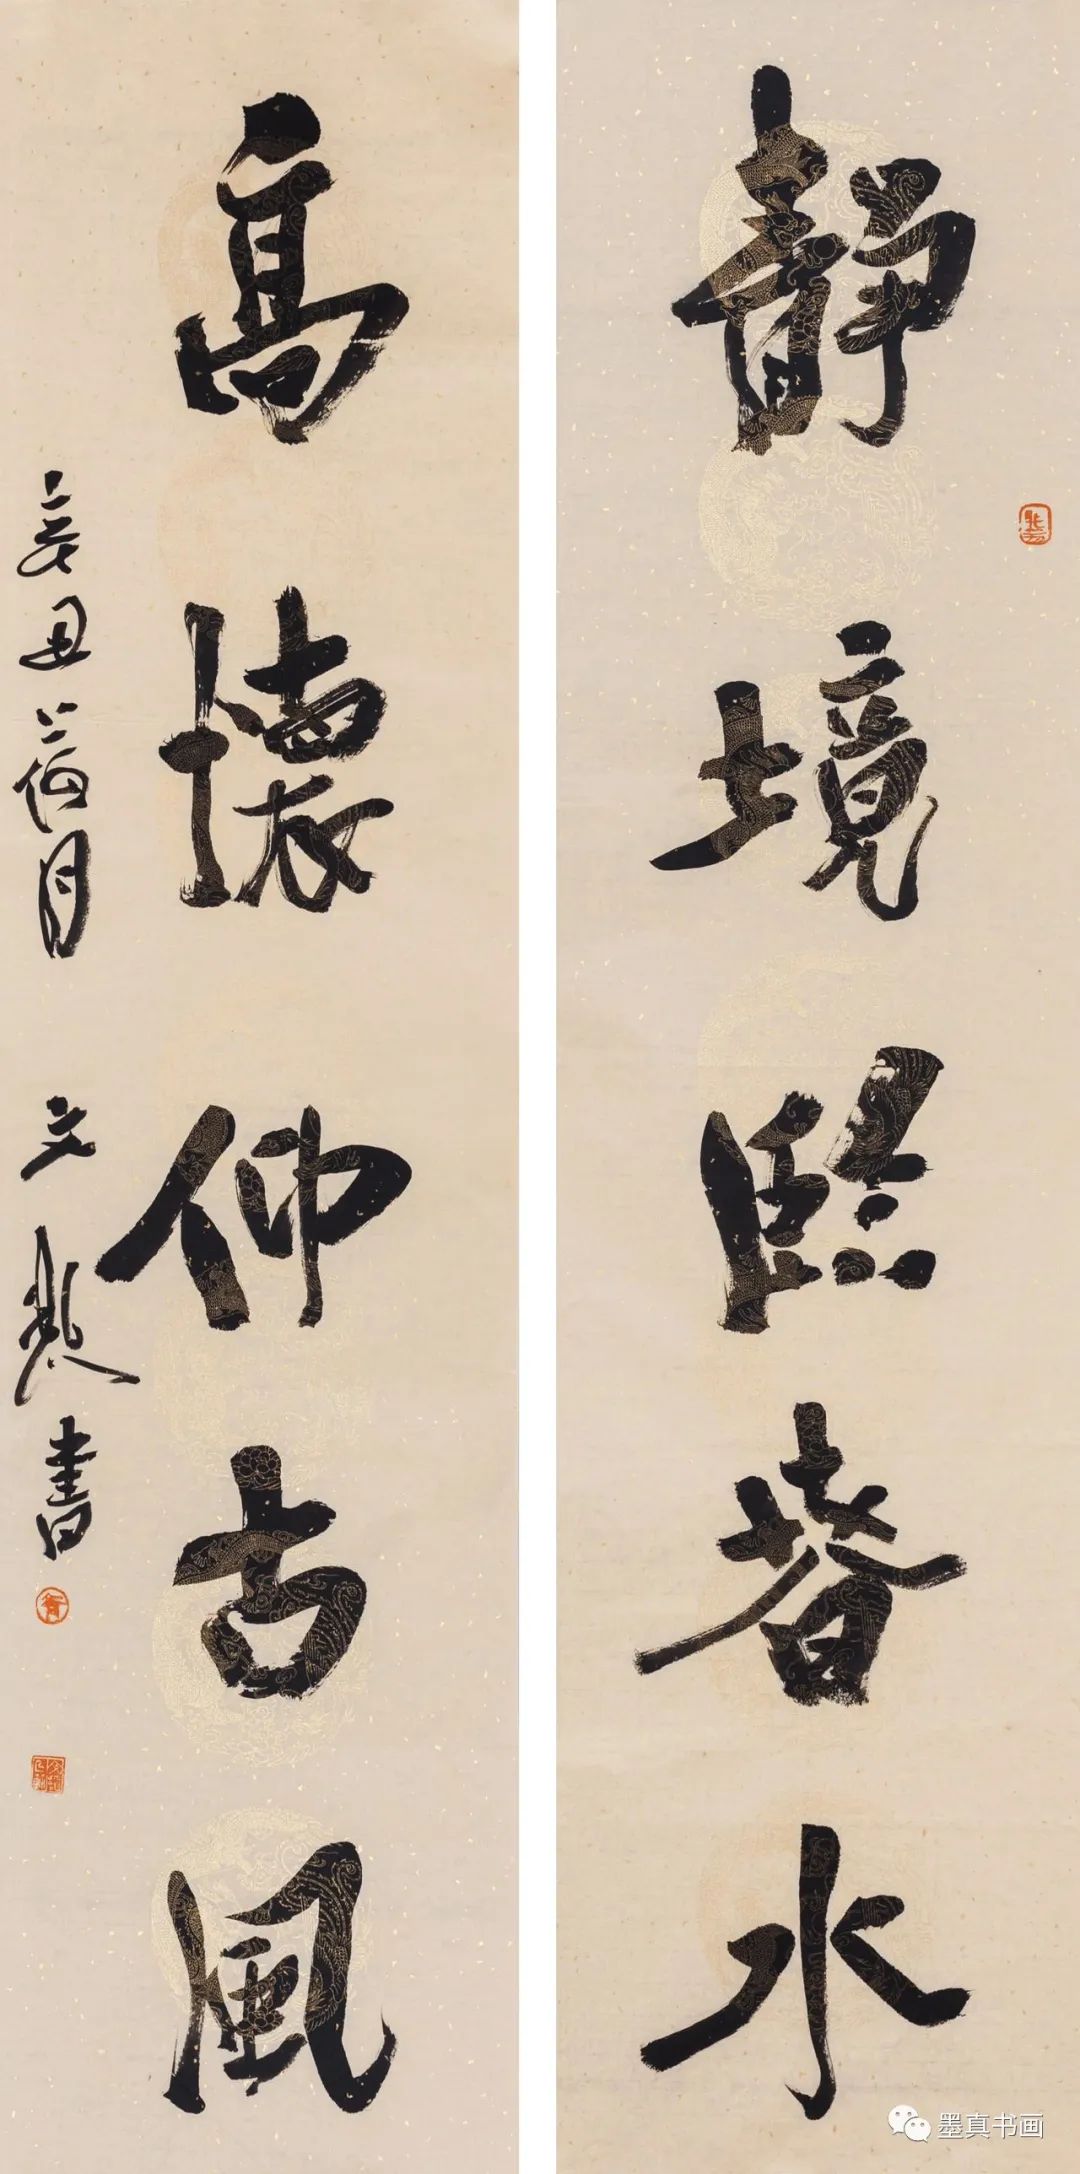 靜境臨春水
高懷仰古風
辛丑荷月
文 書
墨真书画